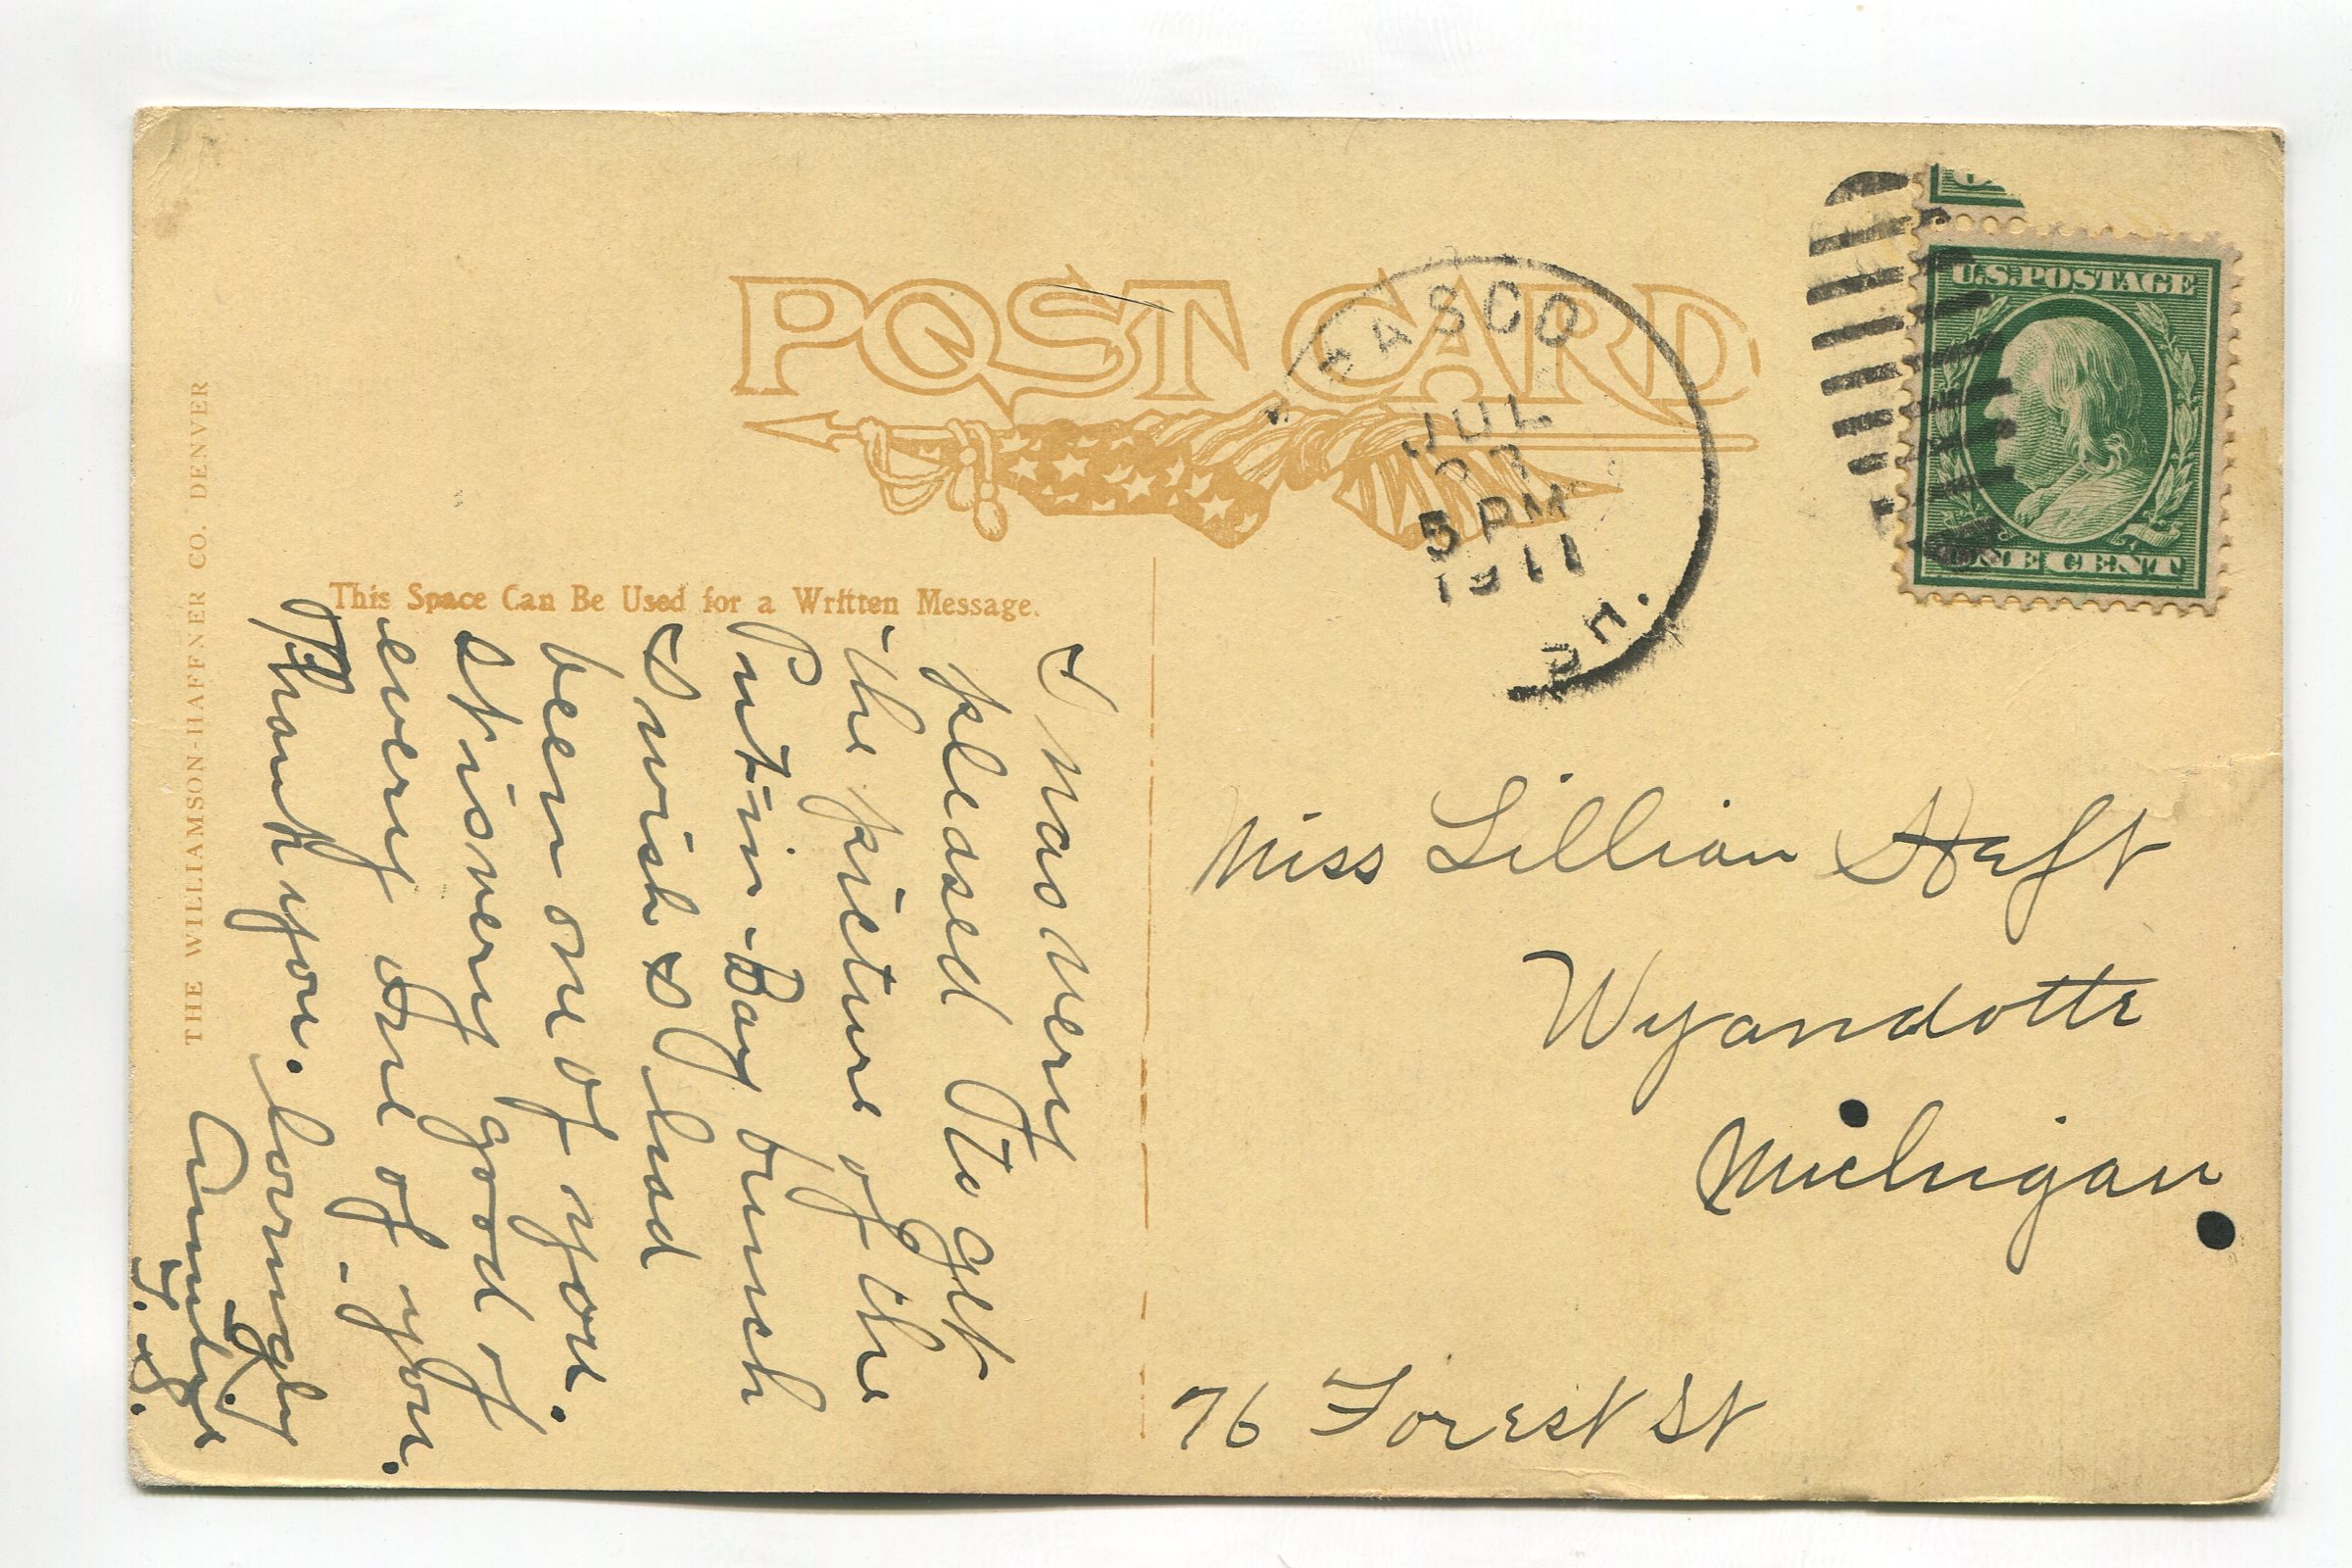 POST CARD
U.S. POSTAGE
ONE CENT
JUL
5 PM
1911
This Space Can Be Used for a Written Message.
THE WILLIAMSON-HAFFNER CO. DENVER
I was very
pleased to get
the picture of the
Put-in-Bay bunch
I wish I had
been one of you.
It is very good of
every one of you.
Thank you. Lovingly
Miss Lillian Heft
Wyandotte
Michigan
76 Forest St